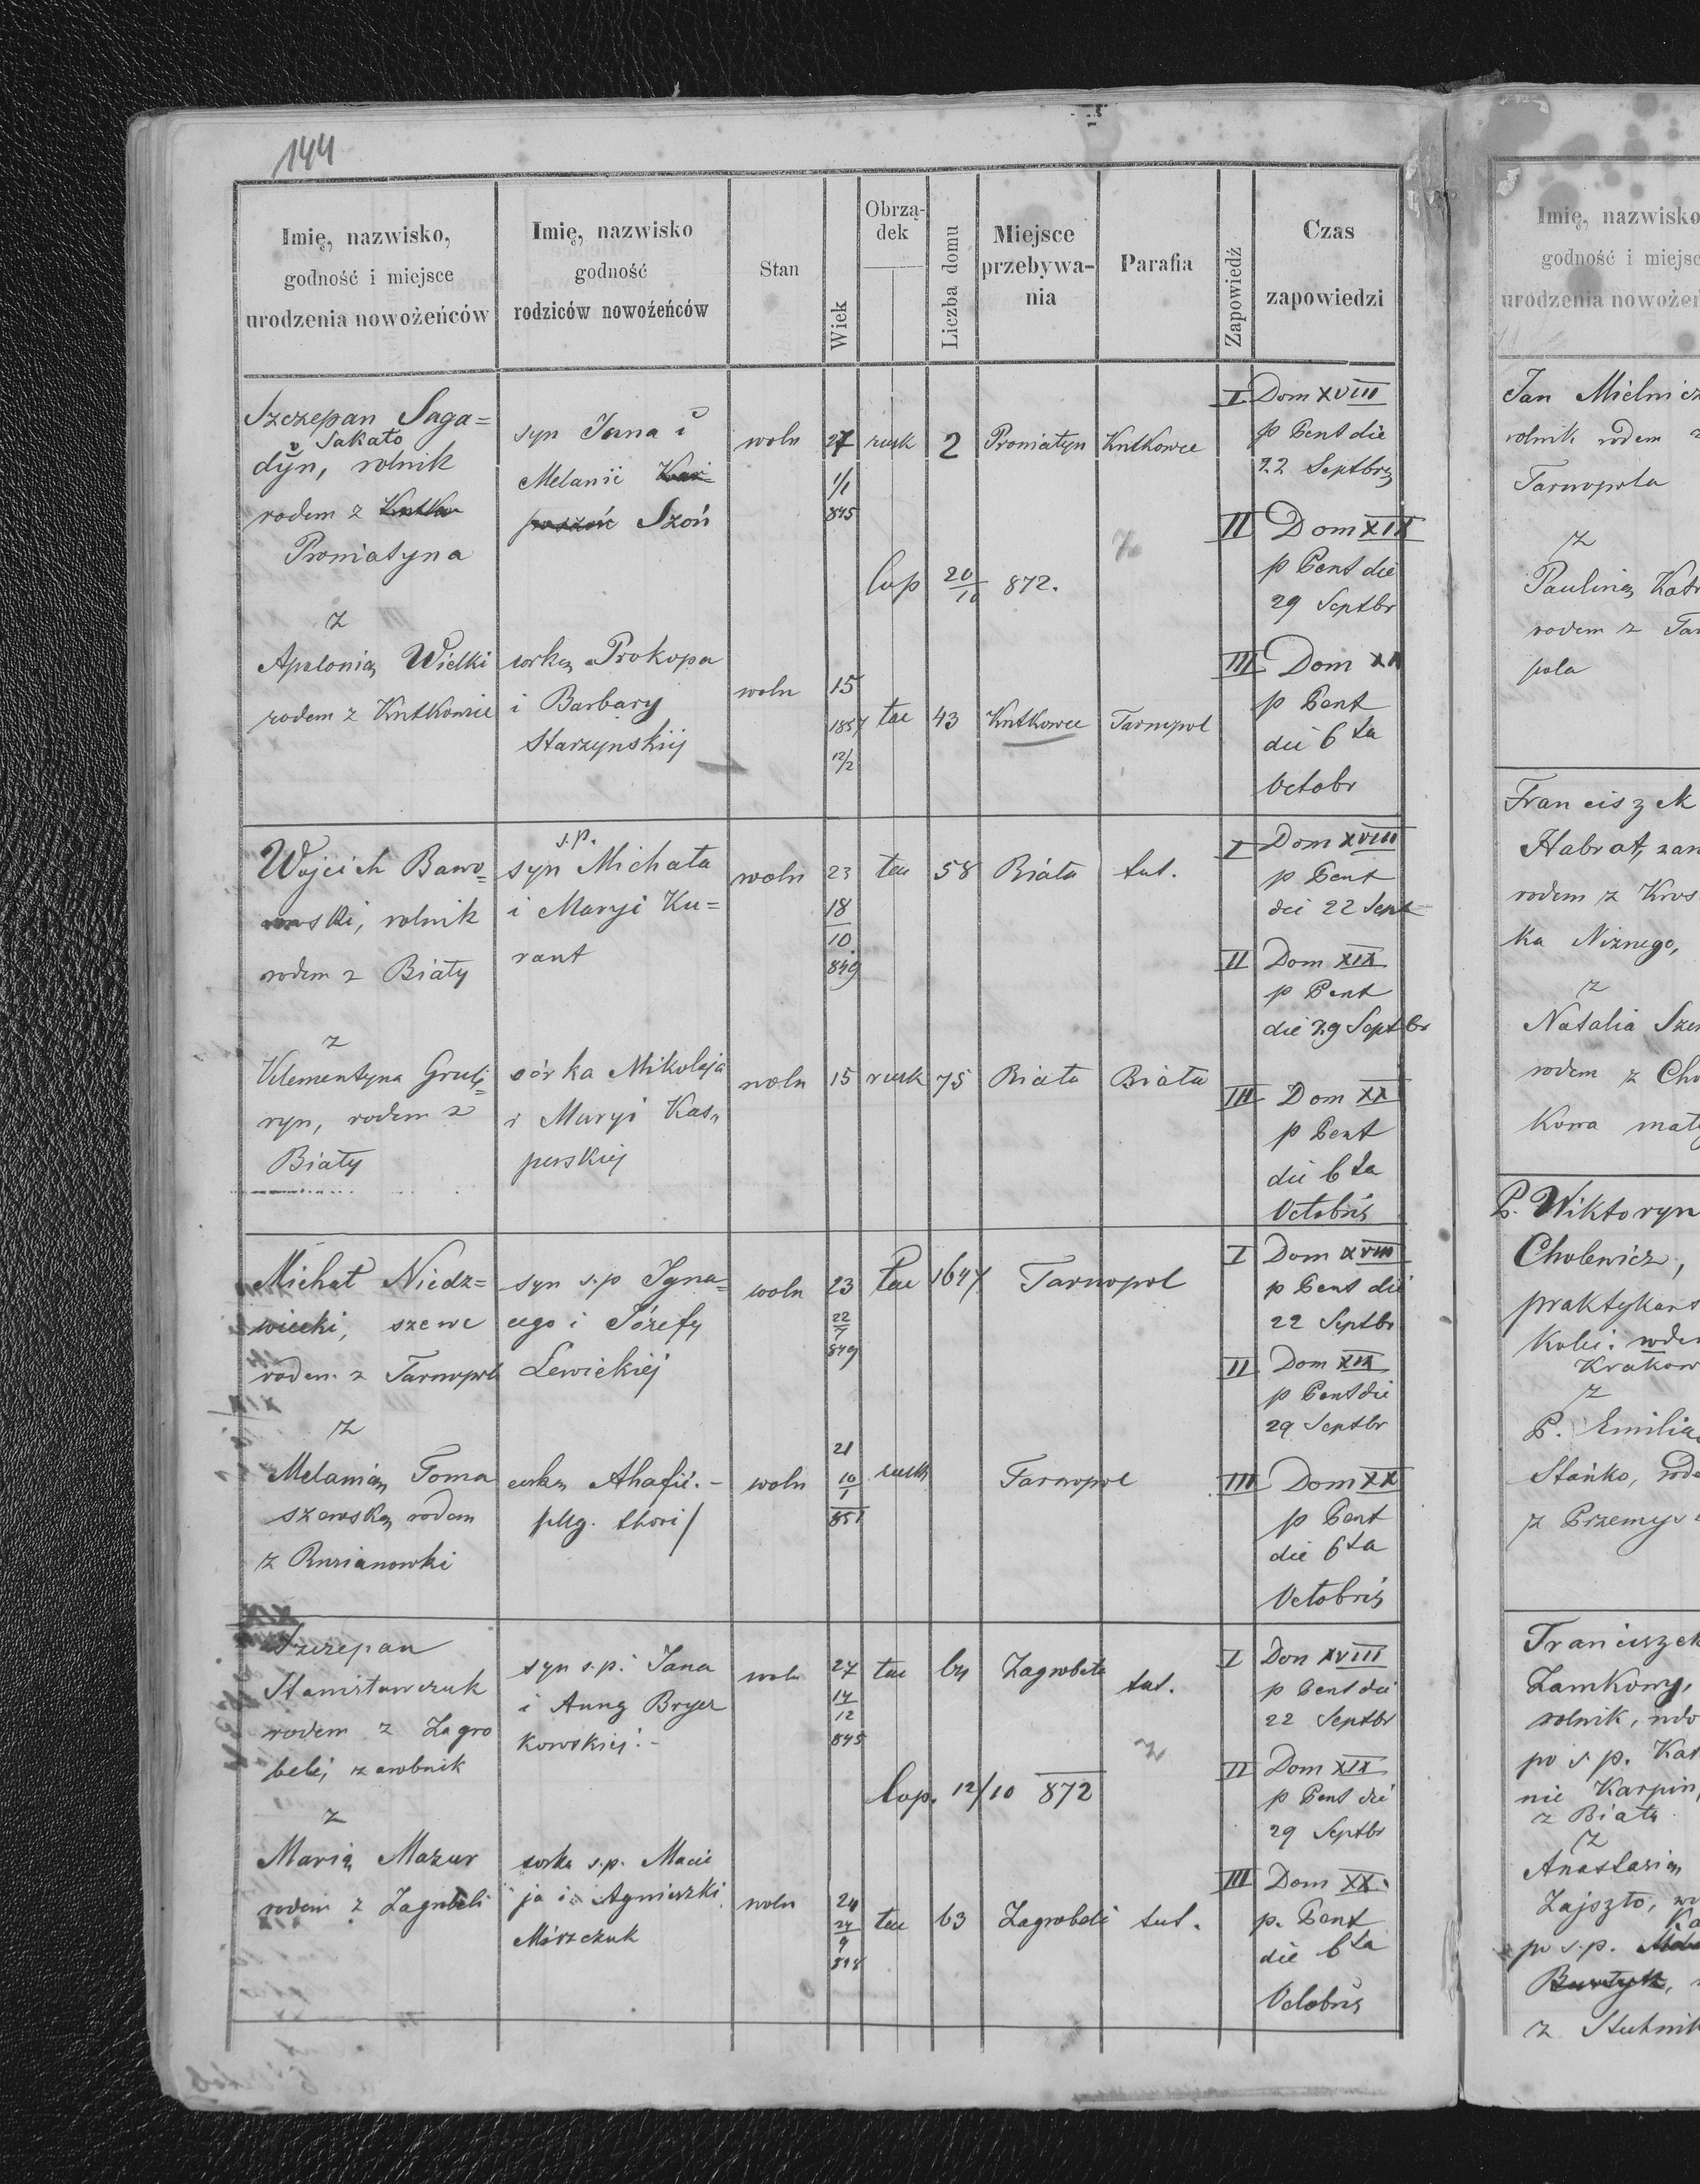 144
Imię, nazwisko,
godność i miejsce
urodzenia nowożeńców
Imię, nazwisko
godność
rodziców nowożeńców
Stan
Wiek
Obrzą-
dek
Liczba domu
Miejsce
przebywa-
nia
Parafia
Zapowiedź
Czas
zapowiedzi
Szczepan Saga=
v Sakato
dyn, rolnik
rodem z
Proniatyna
z
Apolonią Wielki
rodem z Kutkowiec
syn Jana i
Melanii
Szoń
corką Prokopa
i Barbary
Starzynskiij
woln
27
1/1
845
rusk
2
Proniatyn
Kutkowce
Cop 20/10 872.
woln
15
1857
12/2
lac
43
Kutkowce
Tarnopol
I Dom XVIII
p Pent die
22 Septbr
II Dom XIX
p Pent die
29 Septbr
III Dom XX
p Pent
die 6ta
Octobr
Wojcieh Bawo=
rowski, rolnik
rodem z Biały
z
Klementyna
ryn, rodem z
Biały
s.p.
syn Michała
i Maryi Ku=
rant
córka Mikołaja
i Maryi Kas=
perskiej
woln
23
18
10
849
lac
58
Biała
tut.
woln
15
rusk
75
Biała
Biała
I Dom XVIII
p Pent
die 22 Sept
II Dom XIX
p Pent
die 29 Septbr
III Dom XX
p Pent
die 6ta
Octobris
Michał Niedz=
wiecki, szewc
rodem z Tarnopol
z
Melanią Toma
szewską rodem
z Rusianowki
syn s.p Igna=
cego i Józefy
Lewickiej
corką Ahafii.-
woln
23
22
7
849
lac
1647
Tarnopol
woln
21
10
1
851
rusk
Tarnopol
I Dom XVIII
p Pent die
22 Septbr
II Dom XIX
p Pent die
29 Septbr
III Dom XX
p Pent
die 6ta
Octobris
Szczepan
Stanisławczuk
rodem z Zagro
beli, zarobnik
z
Marią Mazur
rodem z Zagrobeli
syn s.p. Jana
i Anny Bryez
kowskiej.-
corka s.p. Macie
ja i Agnieszki
Mirzczuk
woln
27
14
12
845
lac
64
Zagrobela
tut.
Cop. 12/10 872
woln
24
24
9
848
lac
63
Zagrobeli
tut.
I Dom XVIII
p Pent die
22 Septbr
II Dom XIX
p Pent die
29 Septbr
III Dom XX
p. Pent
die 6ta
Octobris
Imię, nazwisko
godność i miejsc
urodzenia nowożeń
Jan Mielnicz
rolnik rodem z
Tarnopola
z
Paulina
rodem z Tar
pola
Franciszek
Habrat, zar
rodem z Kros
ka Niznego,
z
Natalia Szer
rodem z Cho
kowa mał
P. Wiktoryn
Cholewicz,
praktykant
kolei. rodem
Krakow
z
P. Emilia
Stańko, rode
z Przemys
Franciszek
Zamkowy,
rolnik, wdo
po s.p. Kat
nie Karpin,
z Biały
z
Anastazią
Zajszło, wd
po s.p.